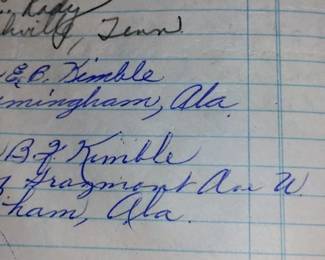 Rady
hville, Tenn.
E. B. Kimble
mingham, Ala.
B. F. Kimble
Frazmont Ave W.
ham, Ala.